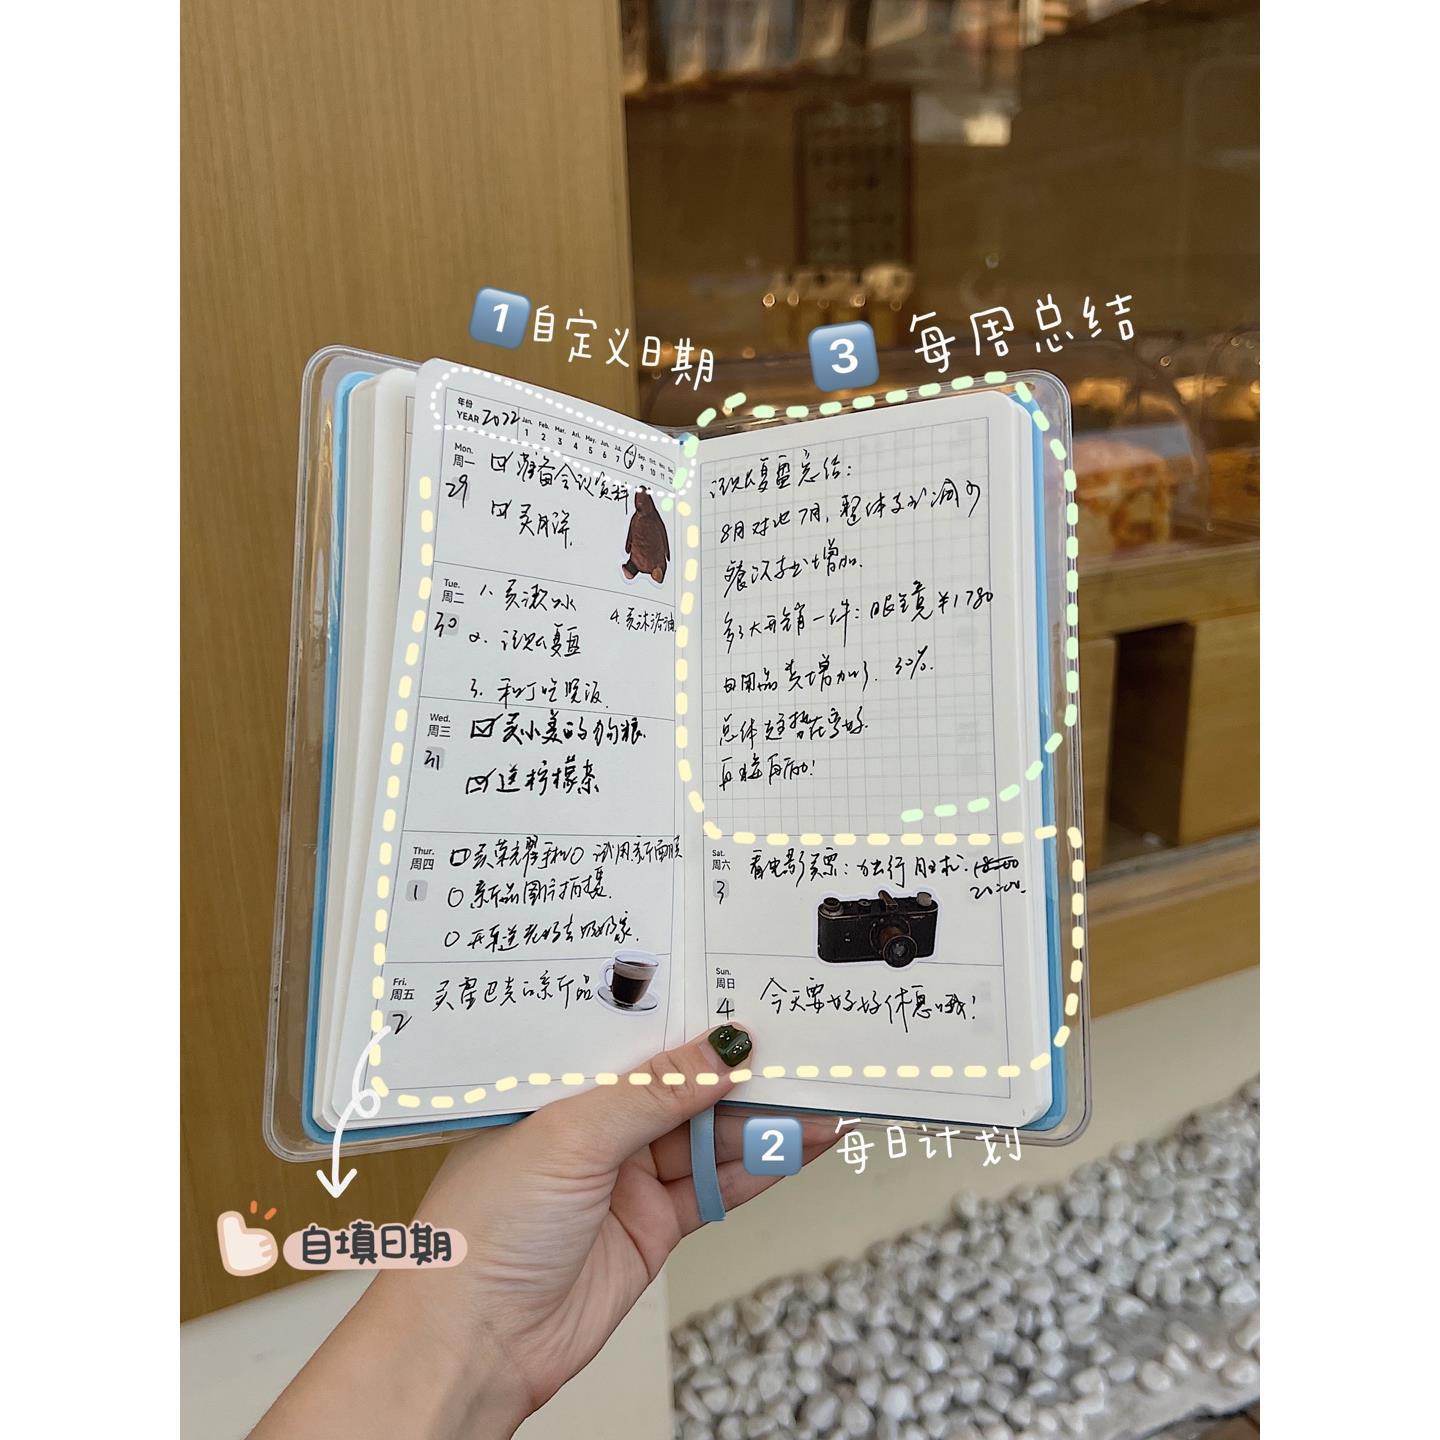 1 自定义日期
3 每周总结
年份
YEAR 2022
Jan. Feb. Mar. Apr. May. Jun. Jul. Sep. Oct. Nov.
1 2 3 4 5 6 7 8 9 10 11
Mon.
周一
29
准备会议资料
买月饼
Tue.
周二
30
1. 买漱口水
4. 买沐浴油
2. 记账复盘
3. 和丁吃晚饭
Wed.
周三
31
买小美的狗粮
送柠檬茶
Thur.
周四
1
买荣耀手机 试用新面膜
新品图片拍摄
开车送老妈去奶奶家
Fri.
周五
2
买星巴克的新品
记账复盘总结：
8月对比7月，整体支出减少
餐饮支出增加
多了大开销一件：眼镜¥1780
日用品类增加了30%.
总体趋势在变好
再接再励！
Sat.
周六
3
看电影买票：独行月球 18:00
20:00
Sun.
周日
4
今天要好好休息哦！
2 每日计划
自填日期